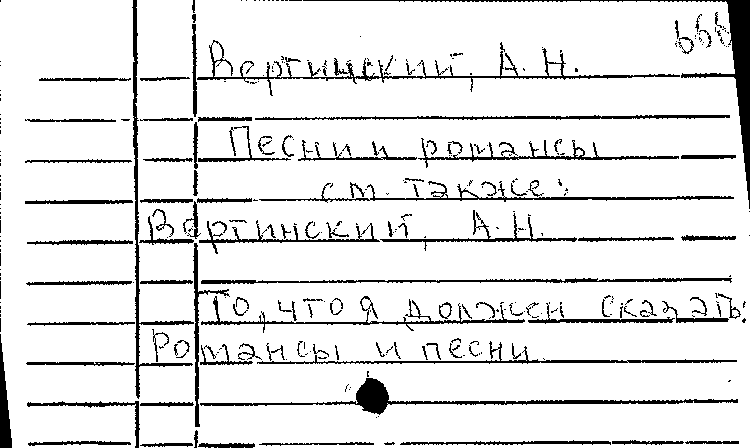 666
Вертинский, А. Н.
Песни и романсы
см. также:
Вертинский, А. Н.
То, что я должен сказать:
Романсы и песни